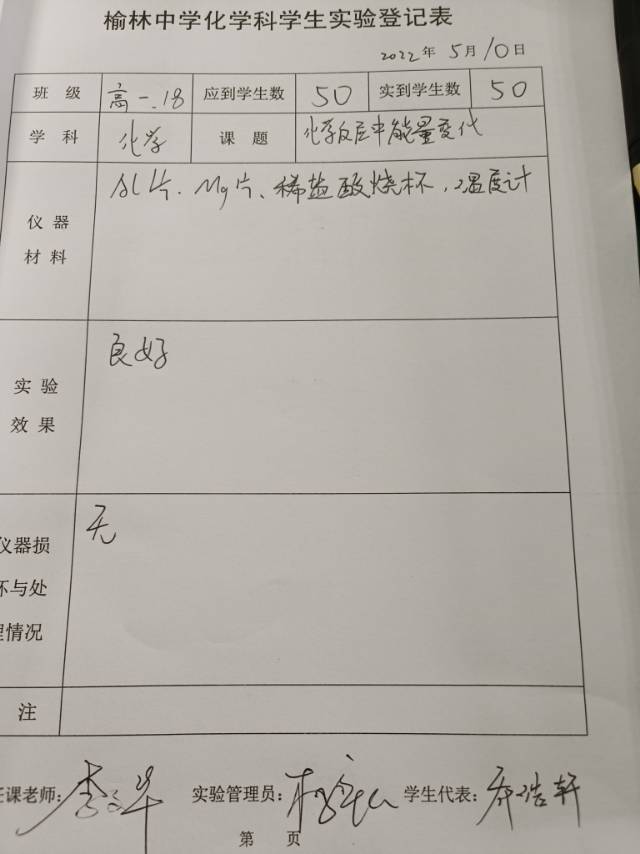 榆林中学化学科学生实验登记表
2022年 5月10日
班 级 高一.18 应到学生数 50 实到学生数 50
学 科 化学 课 题 化学反应中能量变化
仪 器
材 料
Al片、Mg片、稀盐酸烧杯，温度计
实 验
效 果
良好
仪器损
坏与处
理情况
无
注
任课老师： 实验管理员： 学生代表： 浩轩
第 页